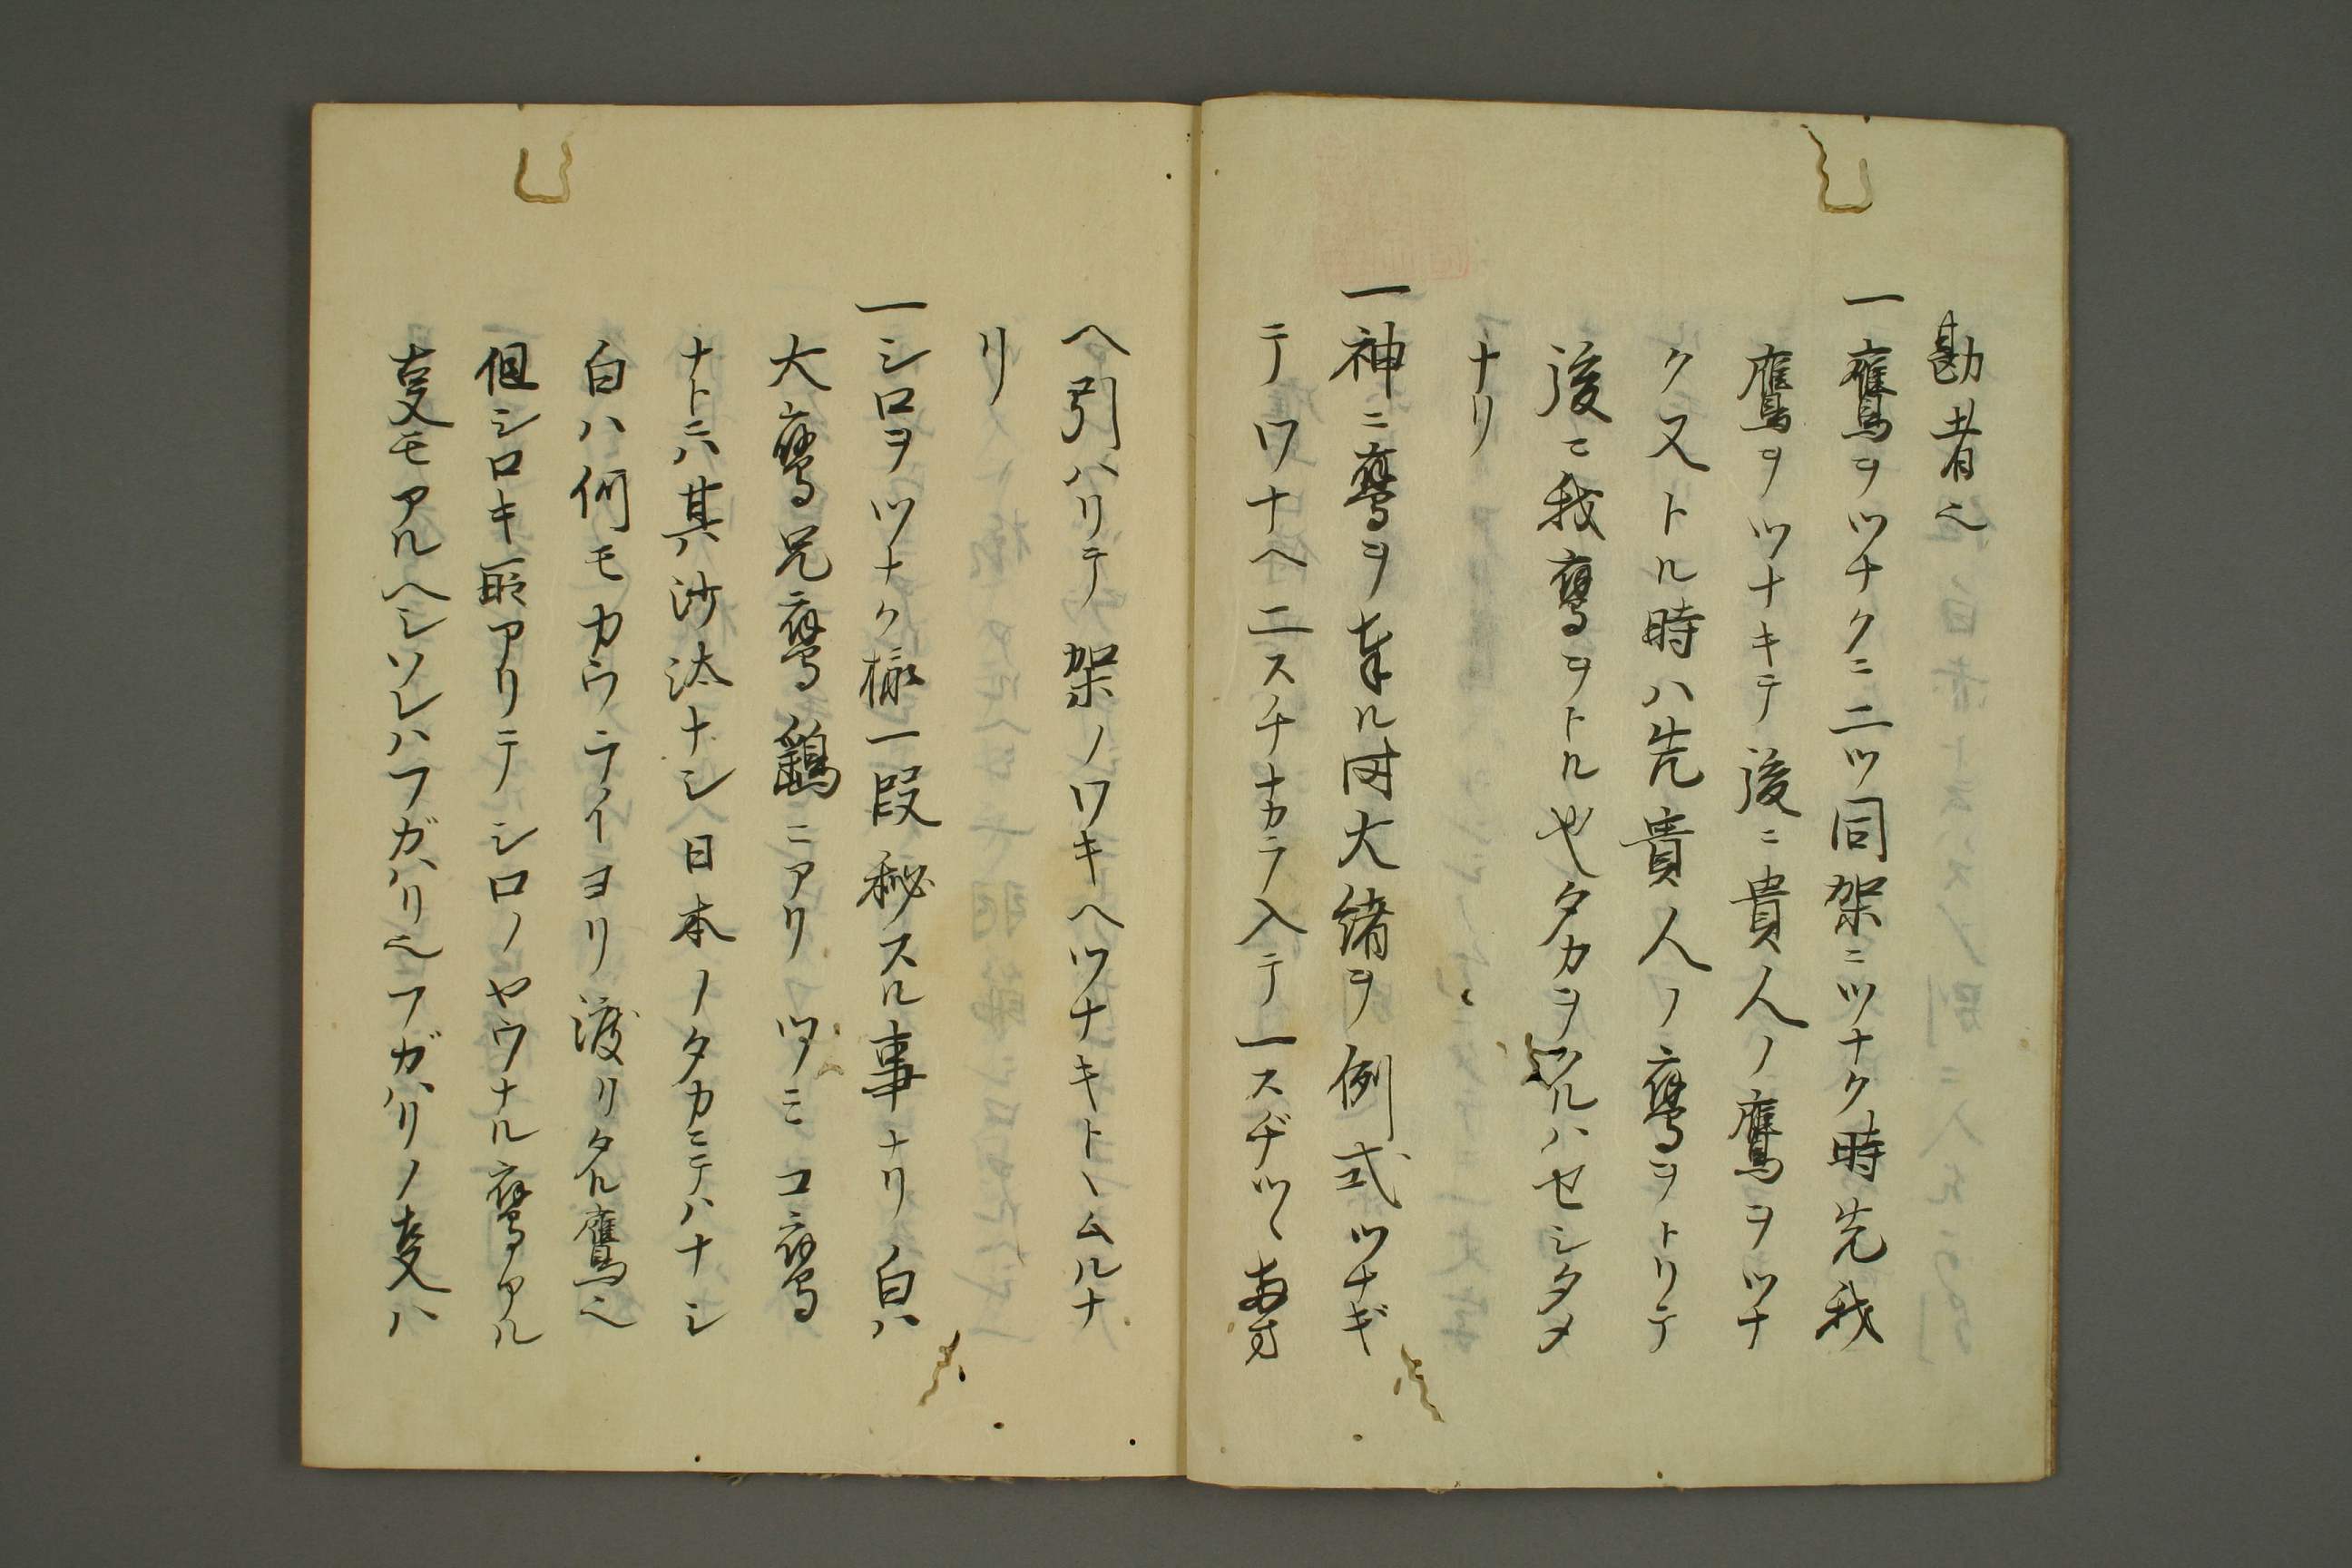 勘者也
一鷹ヲツナクニ二ツ同架ニツナク時先我
鷹ヲツナキテ後ニ貴人ノ鷹ヲツナ
クストル時ハ先貴人ノ鷹ヲトリテ
後ニ我鷹ヲトル也タカヲ ルハセシタメ
ナリ
一神ニ鷹ヲ奉ル时大緒ヲ例式ツナギ
テワナヘ二スチナカラ入テ一スヂツヽ両方
ヘ引ハリテ架ノワキヘツナキトヽムルナ
リ
一シロヲツナク様一段秘スル事ナリ白ハ
大鷹兄鷹鷂ニアリツミコ鷹
ナトニハ其沙汰ナシ日本ノタカニテハナシ
白ハ何モカウライヨリ渡リタル鷹也
但シロキ符アリテシロノヤウナル鷹アル
事モアルヘシソレハフガハリ也フガハリノ事ハ